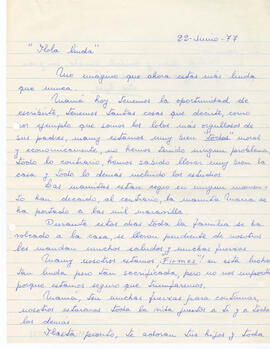 22-Junio-77
"Hola linda"
Me imagino que ahora estas más linda
que nunca.
Mamá hoy tenemos la oportunidad de
escribirte, tenemos tantas cosas que decirte, como
por ejemplo que somos los lolos más orgullosos de
sus padres, mamy estamos muy bien "todos" moral
y economicamente, no hemos tenido ningun problema
todo lo contrario, hemos sabido llevar muy bien la
casa y todo lo demás incluido los estudios
Las mamitas estan regio en ningun momen-
to han decaido, al contrario, la mamita María se
ha portado a las mil maravilla
Durante estos días toda la familia se ha
volcado a la casa, se llevan pendiente de nosotros
les mandan muchos saludos y muchas fuerzas
Mamy nosotros estamos "Firmes" en esta lucha
tan linda pero tan sacrificada, pero no nos importa
porque estamos seguro que triunfaremos.
Mamá, ten muchas fuerzas para continuar,
nosotros estaremos toda la vida junto a ti y a todos
los demás
Hasta pronto, te adoran tus hijos y toda